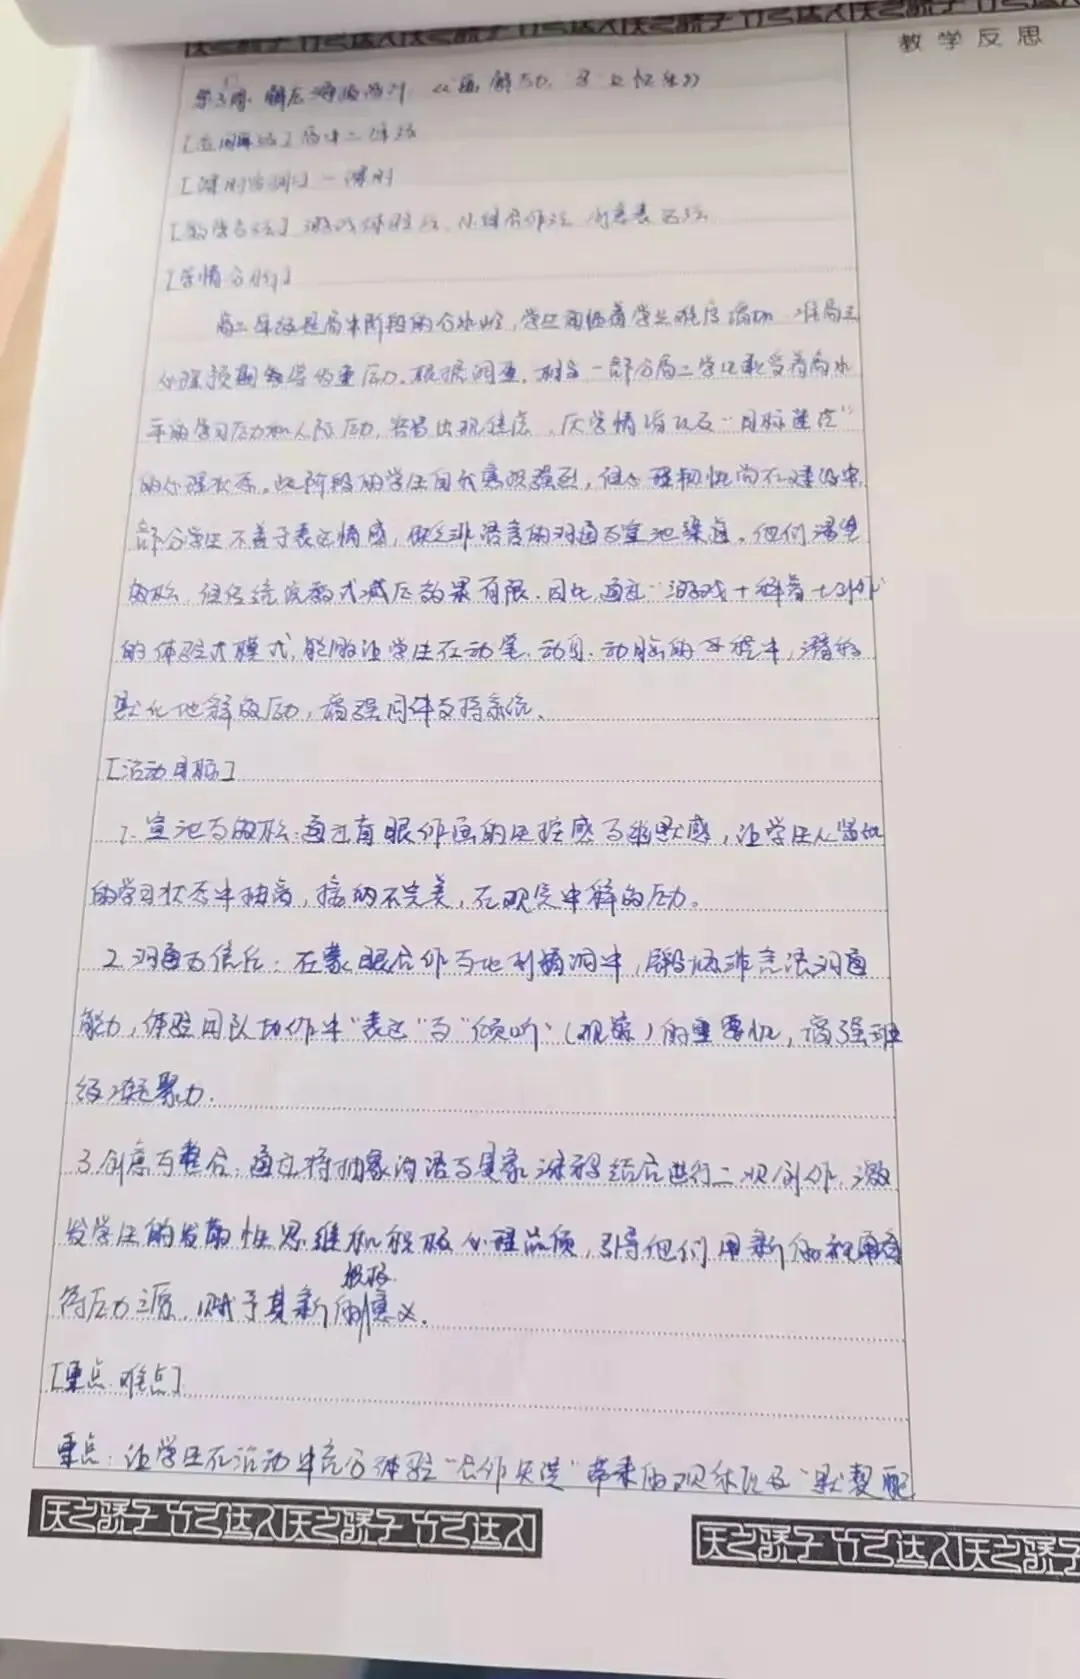 教学反思
[适用年级] 高中二年级
[课时安排] 一课时
[教学方法] 游戏体验法、小组合作法、创意表达法
[学情分析]
高二年级是高中阶段的分水岭,学生面临着学业难度增加、准高三
心理预期等多重压力。根据调查,相当一部分高二学生承受着高水
平的学习压力和人际压力,容易出现焦虑、厌学情绪以及“目标迷茫”
的心理状态。此阶段的学生自我意识强烈,但心理韧性尚在建设中,
部分学生不善于表达情感,缺乏非语言的沟通与宣泄渠道。他们渴望
放松,但传统说教式减压效果有限。因此,通过“游戏+科普+创作”
的体验式模式,能够让学生在动笔、动身、动脑的过程中,潜移
默化地释放压力,增强同伴支持系统。
[活动目标]
1. 宣泄与放松:通过盲眼作画的失控感与幽默感,让学生从紧张
的学习状态中抽离,接纳不完美,在欢笑中释放压力。
2. 沟通与信任:在蒙眼合作与你画我猜中,锻炼非言语沟通
能力,体验团队协作中“表达”与“倾听”(观察)的重要性,增强班
级凝聚力。
3. 创意与整合:通过将抽象词语与具象涂鸦结合进行二次创作,激
发学生的发散性思维和积极心理品质,引导他们用新的视角看
待压力源,赋予其新的积极意义。
[重点难点]
重点:让学生在活动中充分体验“合作失误”带来的欢乐以及“默契配
天之骄子 竹之达人 天之骄子 竹之达人
天之骄子 竹之达人 天之骄子